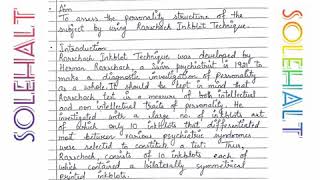 Aim
To assess the personality structure of the
subject by using Rorschach Inkblot Technique.
Introduction
Rorschach Inkblot Technique was developed by
Herman Rorschach, a swiss psychiatrist in 1921 to
make a diagnostic investigation of personality
as a whole. It should be kept in mind that
Rorschach test is a measure of both intellectual
and non intellectual traits of personality. He
investigated with a large no. of inkblots out
of which only 10 inkblots that differentiated
most between various psychiatric syndromes
were selected to constitute a test. Thus,
Rorschach, consists of 10 inkblots each of
which contained a bilaterally symmetrical
printed inkblots.
SOLEHALT
SOLEHALT